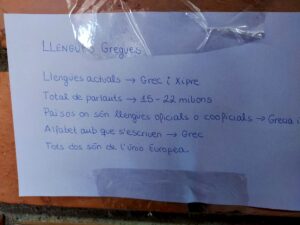 LLENGUES Gregues
Llengues actuals → Grec i Xipre
Total de parlants → 15-22 milions
Països on són llengües oficials o cooficials → Grecia i
Alfabet amb que s'escriuen → Grec
Tots dos són de l'Unio Europea.